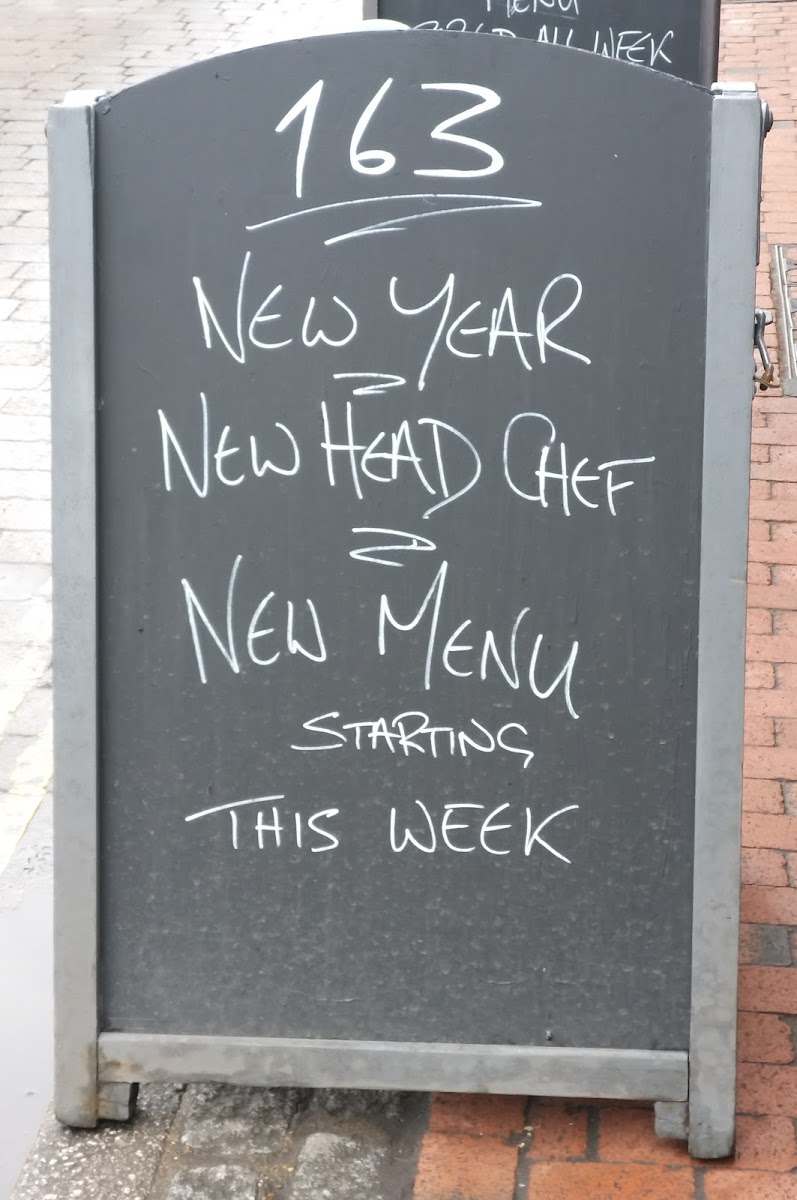 MENU
ALL WEEK
163
NEW YEAR
NEW HEAD CHEF
NEW MENU
STARTING
THIS WEEK